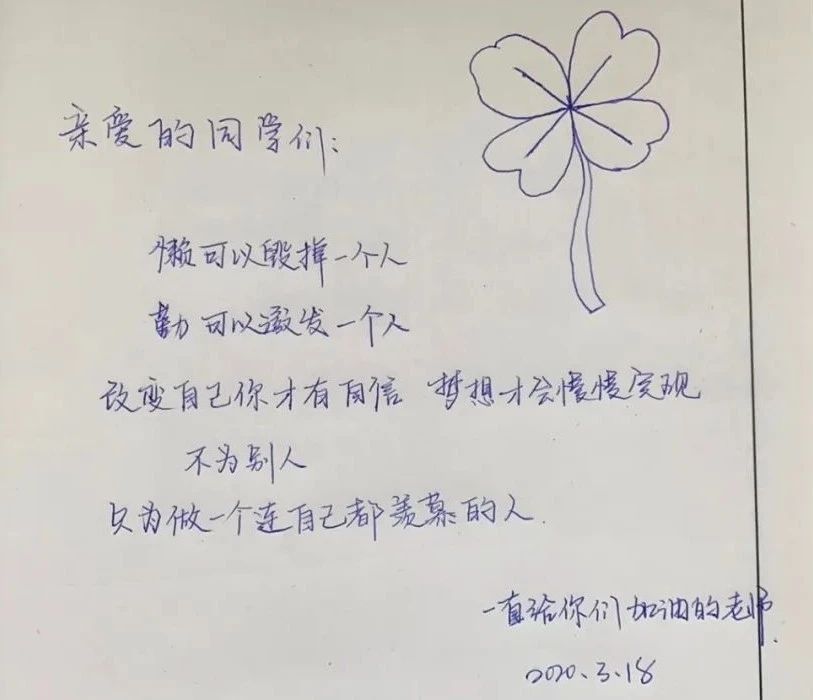 亲爱的同学们：
懒可以毁掉一个人
勤可以激发一个人
改变自己你才有自信 梦想才会慢慢实现
不为别人
只为做一个连自己都羡慕的人.
一直给你们加油的老师.
2020.3.18